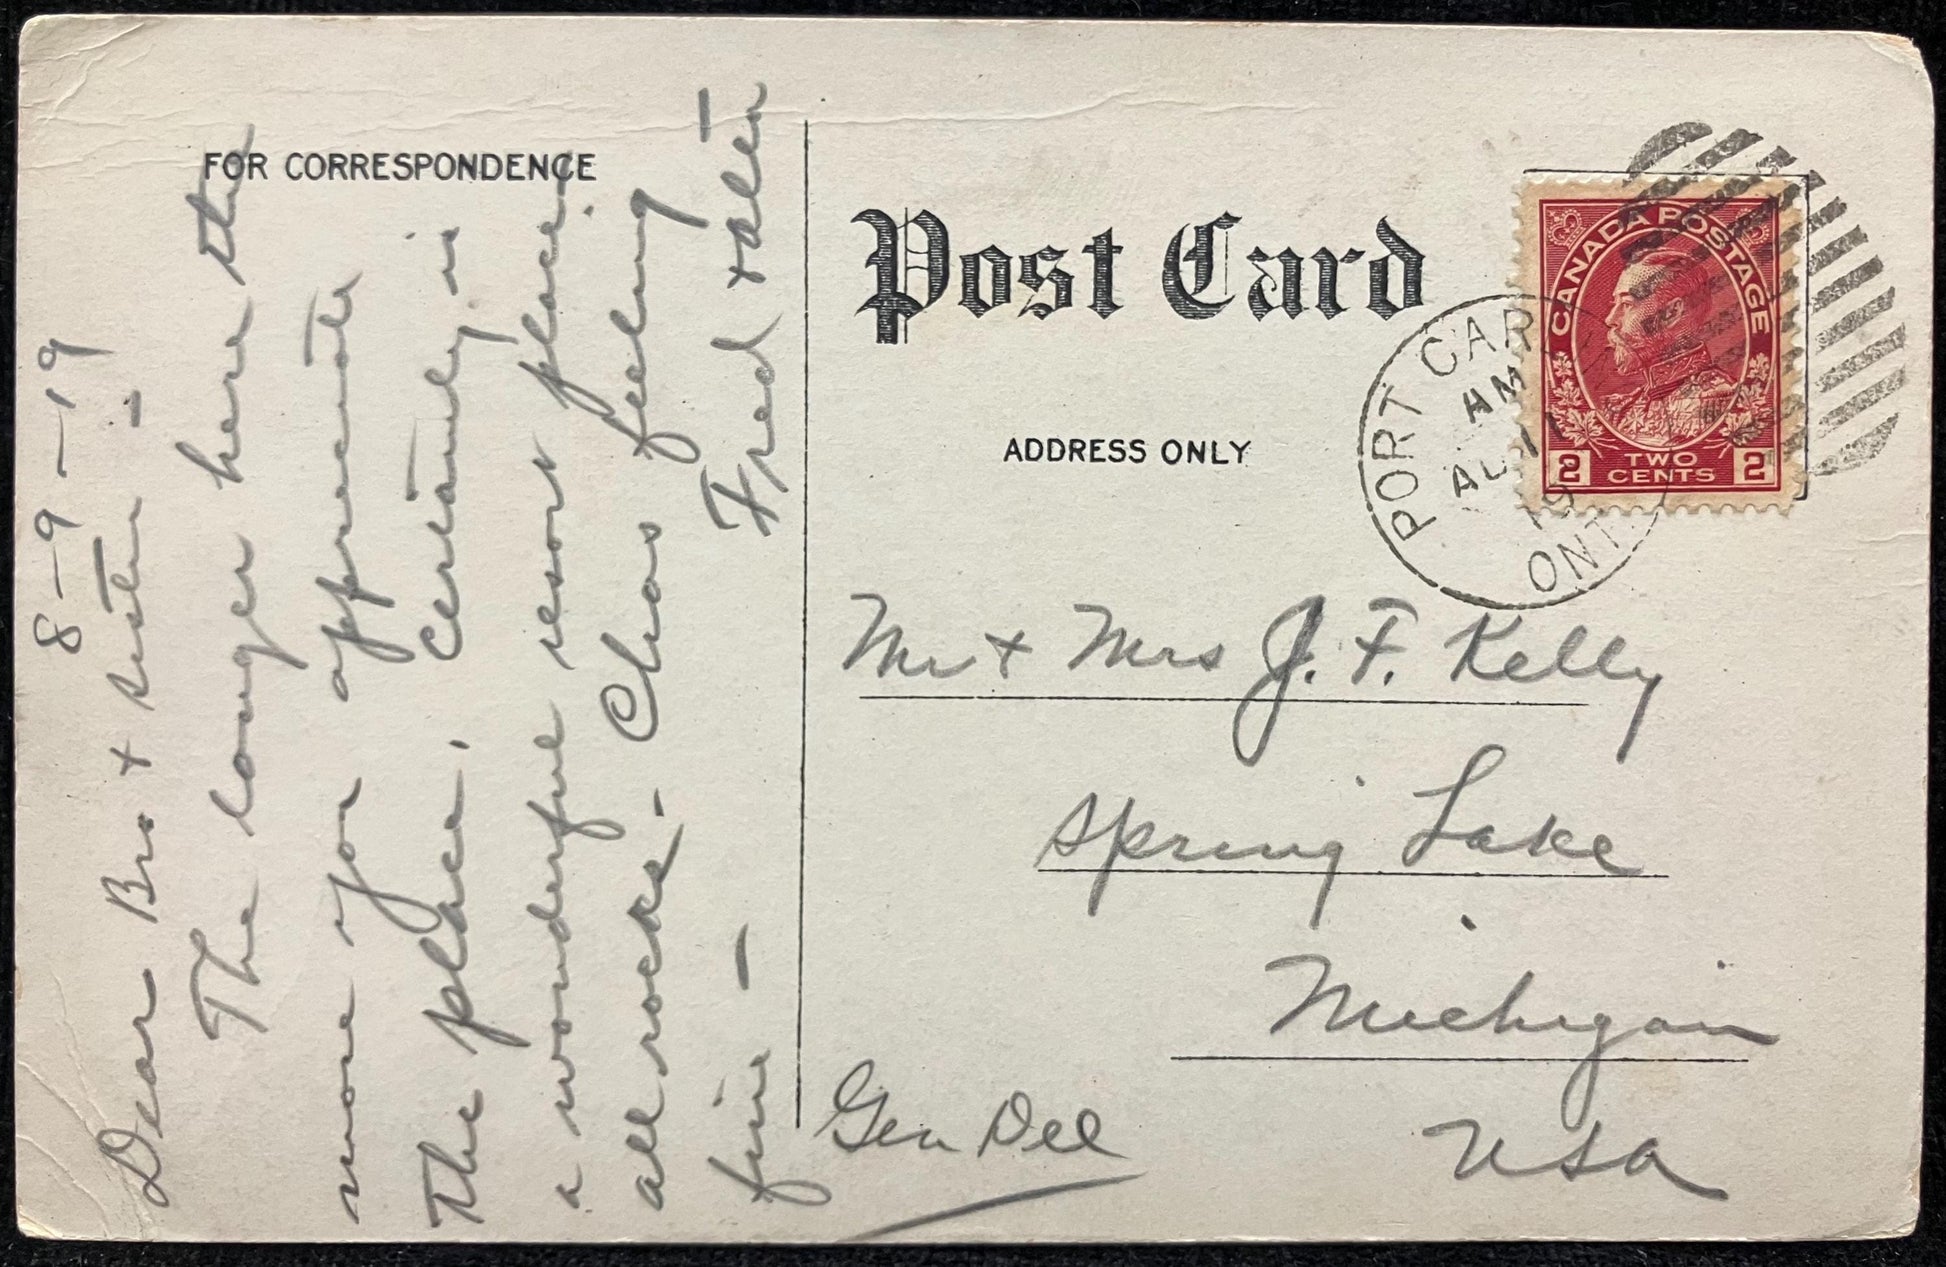 FOR CORRESPONDENCE
8-9-19
Dear Bro + sister -
The longer here the
more you appreciate
the place. Certainly is
a wonderful resort place.
all rocks - Chas feeling
fine - Fred + allen -
Post Card
ADDRESS ONLY
CANADA POSTAGE
2 TWO CENTS 2
PORT CAR
AM
AU 11
19
ONT.
Mr + Mrs J. F. Kelly
Spring Lake
Michigan
USA
Gen Del